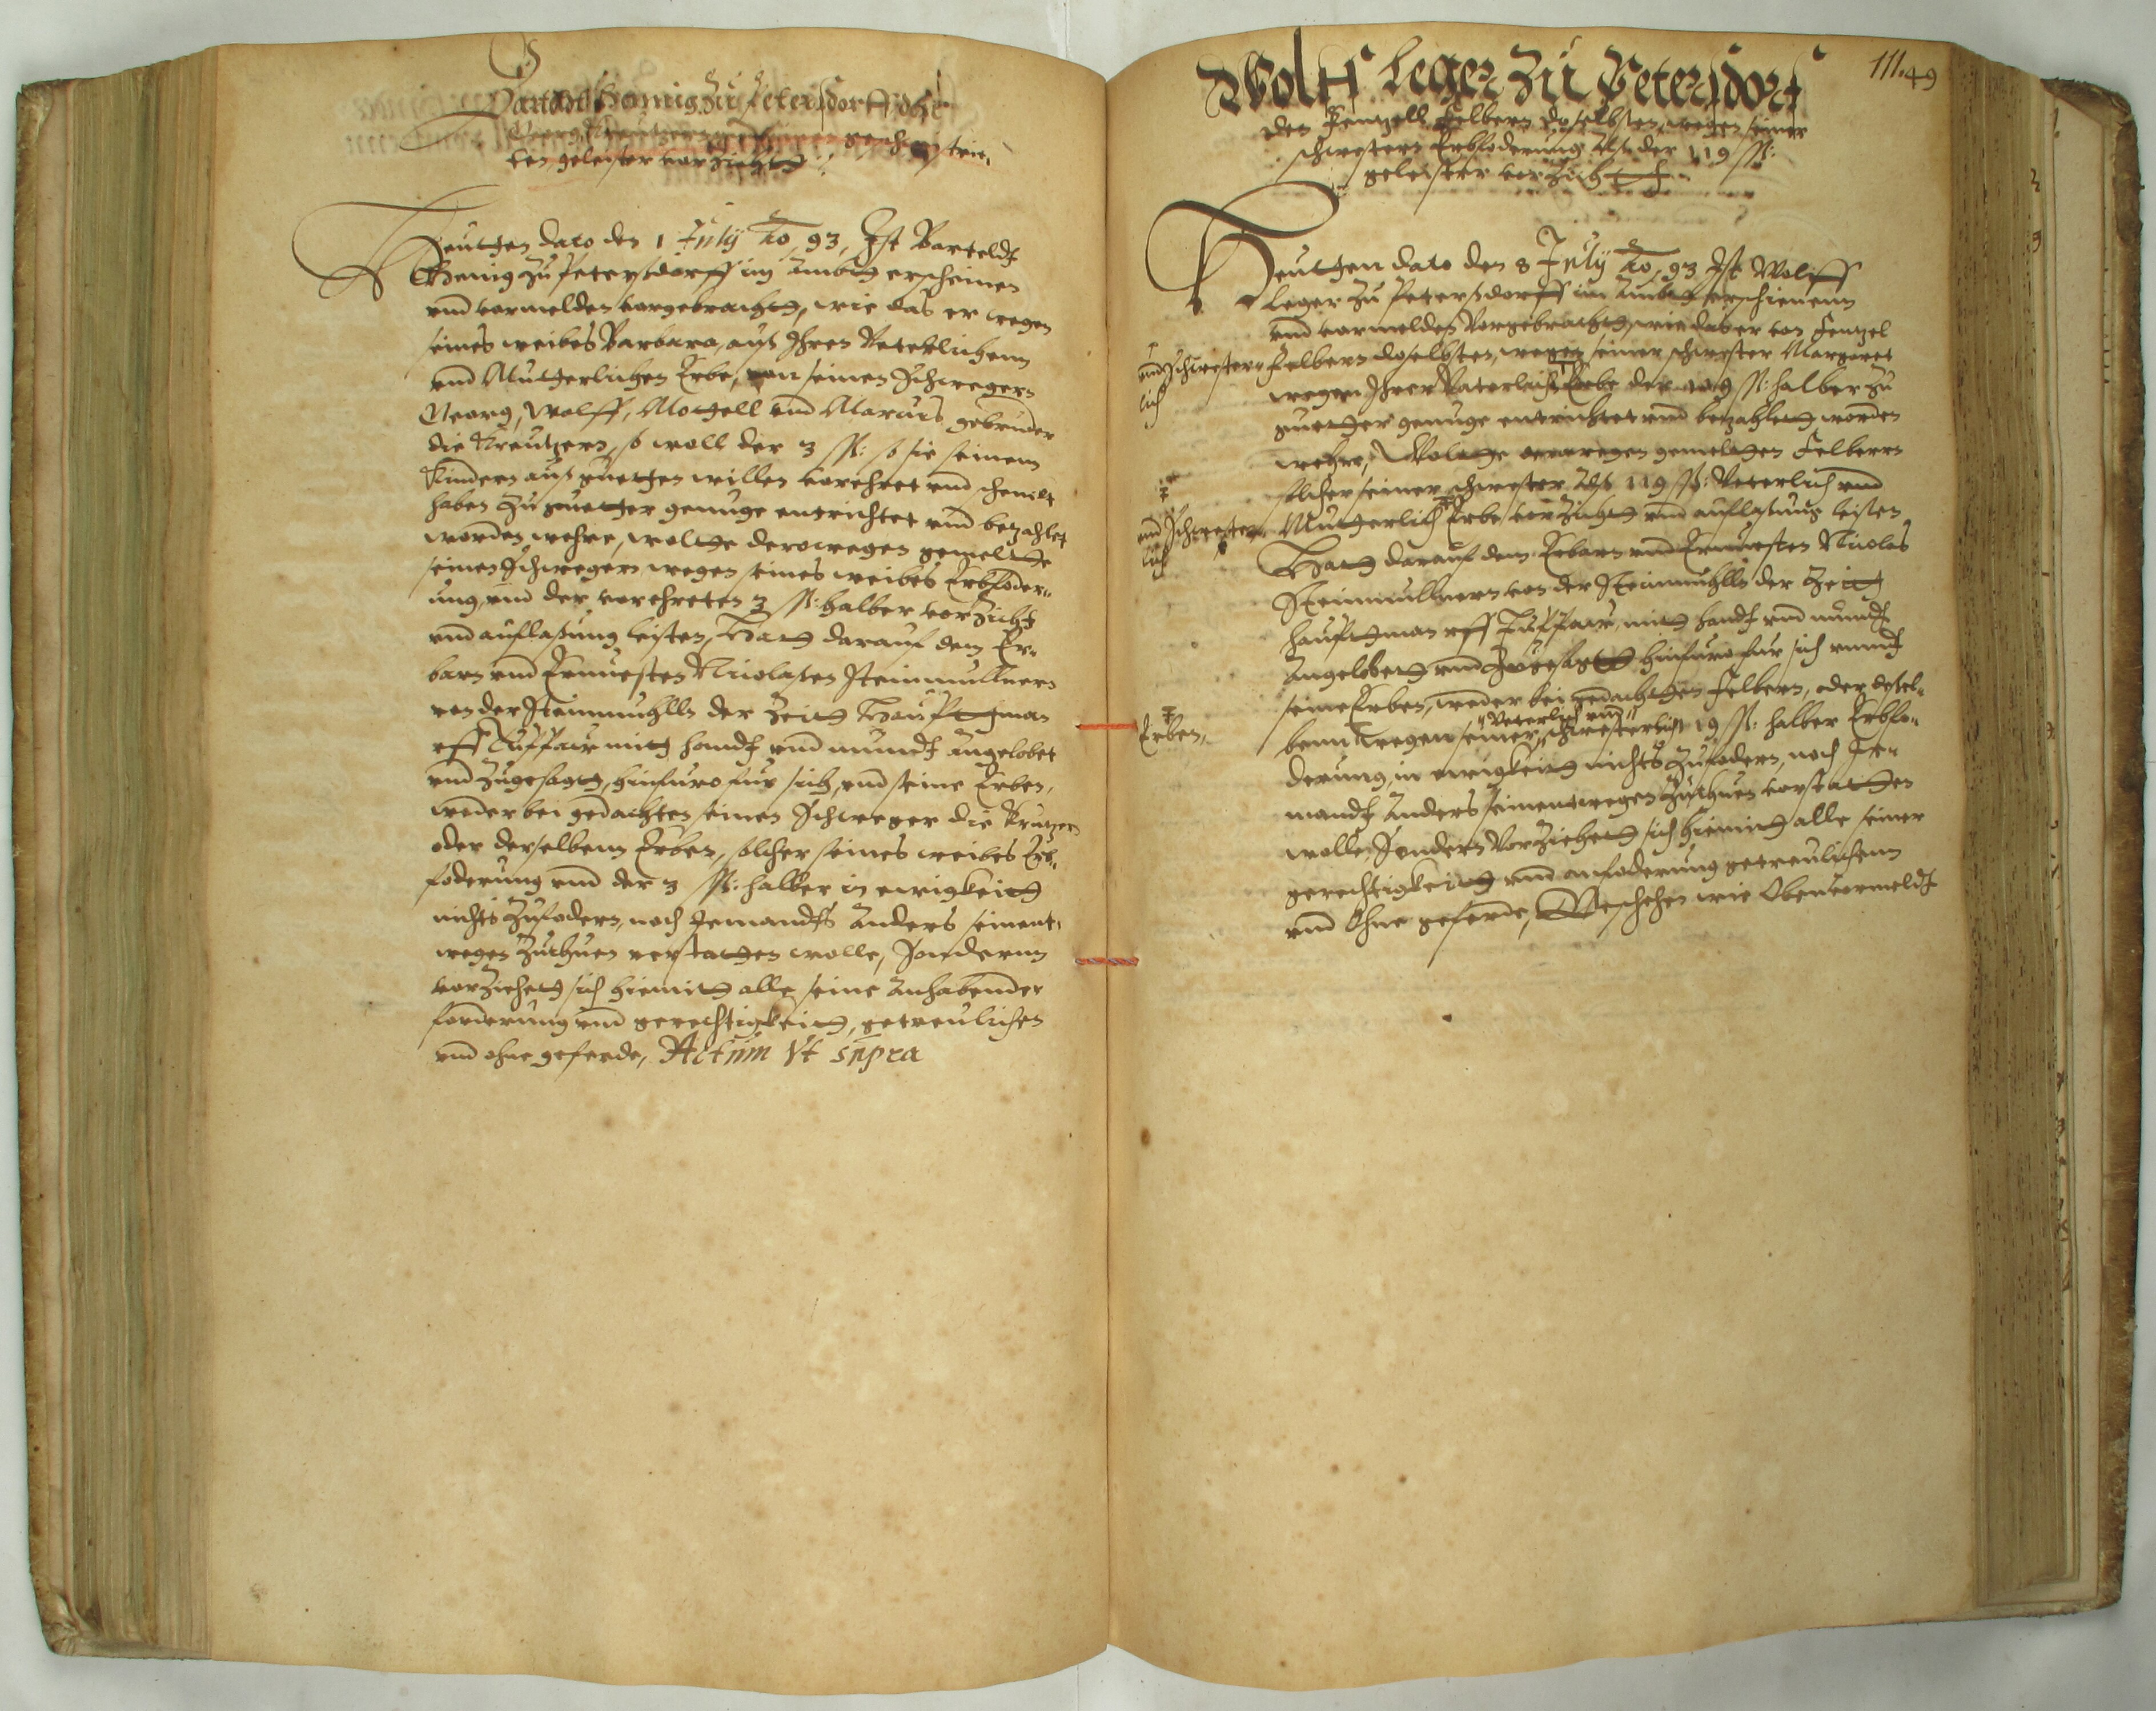 Barteldt Henig zu Petersdorff den
Georg Kreutzern
ten geleister vorzicht
Heutten dato den 1 July Ao, 93, Ist Barteldt
Henig zu Peterßdorff im Ambt erscheinen
vnd vormelden vorgebracht, wie das er wegen
seines weibes Barbara, auß Ihren Veterlichenn
vnd Mutterlichen Erbe, von seinen Schwegern
Georg, Wolff, Motzell vnd Marcus gebruder
die Kreutzern, so woll der 3 ß: so sie seinem
Kindern auß gutten willen vorehret vnd schenckt
haben zu gutter genuge entrichtet vnd betzahlet
worden wehre, wolte derowegen gemelte
seinen Schwegern wegen seines weibes Erbfoder-
ung, vnd der vorehreten 3 ß: halber vorzicht
vnd auflaßung leisten, Hatt darauf dem Er-
barn vnd Ernuesten Nicolaßen Steinmullnern
von der Steinmuhlln der Zeitt Hauptman
vff Tuppaw mitt handt vnd mundt angelobet
vnd zugesagt, hinfuro fur sich, vnd seine Erben,
weder bei gedachten seinen Schweger die Kreutzer
oder derselbenn Erben, solcher seines weibes Erb-
foderung vnd der 3 ß: halber in ewigkeitt
nichts zufodern, noch Jemandts anders seinent-
wegen zuthuen verstatten wolle, sondernn
vorziehett sich hiemitt alle seine anhabender
forderung vnd gerechtigkeitt, getreulichen
vnd ohne geferde, Actum Vt supra
111.49
Wolff Leger zu Petersdorf
den Fentzell Felbern doselbsten, wegen seiner
schwestern Erbfoderung Als der 119 ß:
geleister vorzicht
Heutten dato den 8 July Ao, 93 Ist Wolff
Leger zu Peterßdorff im Ambt erschienenn
vnd vormelden Vorgebracht, wie das er von Fentzel
vnd schwester- Felbern doselbsten, wegen seiner schwester Margaret
lich
wegen Ihrer Vaterlich Erbe der 119 ß: halber zu
gutter genuge entrichtet vnd betzahlet worden
wehre, Wolte derowegen gemelten Felbern
solcher seiner schwester Als 119 ß: Veterlich vnd
vnd Schwester- Mutterlich Erbe vorzicht vnd auflaßung leisten
lich
Hatt darauf dem Erbarn vnd Ernuesten Nicolas
Steinmullnern von der Steinmuhlln der Zeitt
hauptman vff Tuppaw, mitt handt vnd mundt
Angelobett vnd Zugesagt hinfuro fur sich vnnd
seine Erben, weder bei gedachten Felbern, oder desel-
Erben,
Veterlich vnd
benn wegen seiner schwesterlich 119 ß: halber Erbfo-
derung, in ewigkeitt nichts zufodern, noch Je-
mandt Anders seinentwegen zuthuen vorstatten
wolle, Sondern Vorziehett sich hiemitt alle seiner
gerechtigkeitt vnd anfoderung getreulichenn
vnd Ohne geferde, Geschehen wie Obenuormeldt